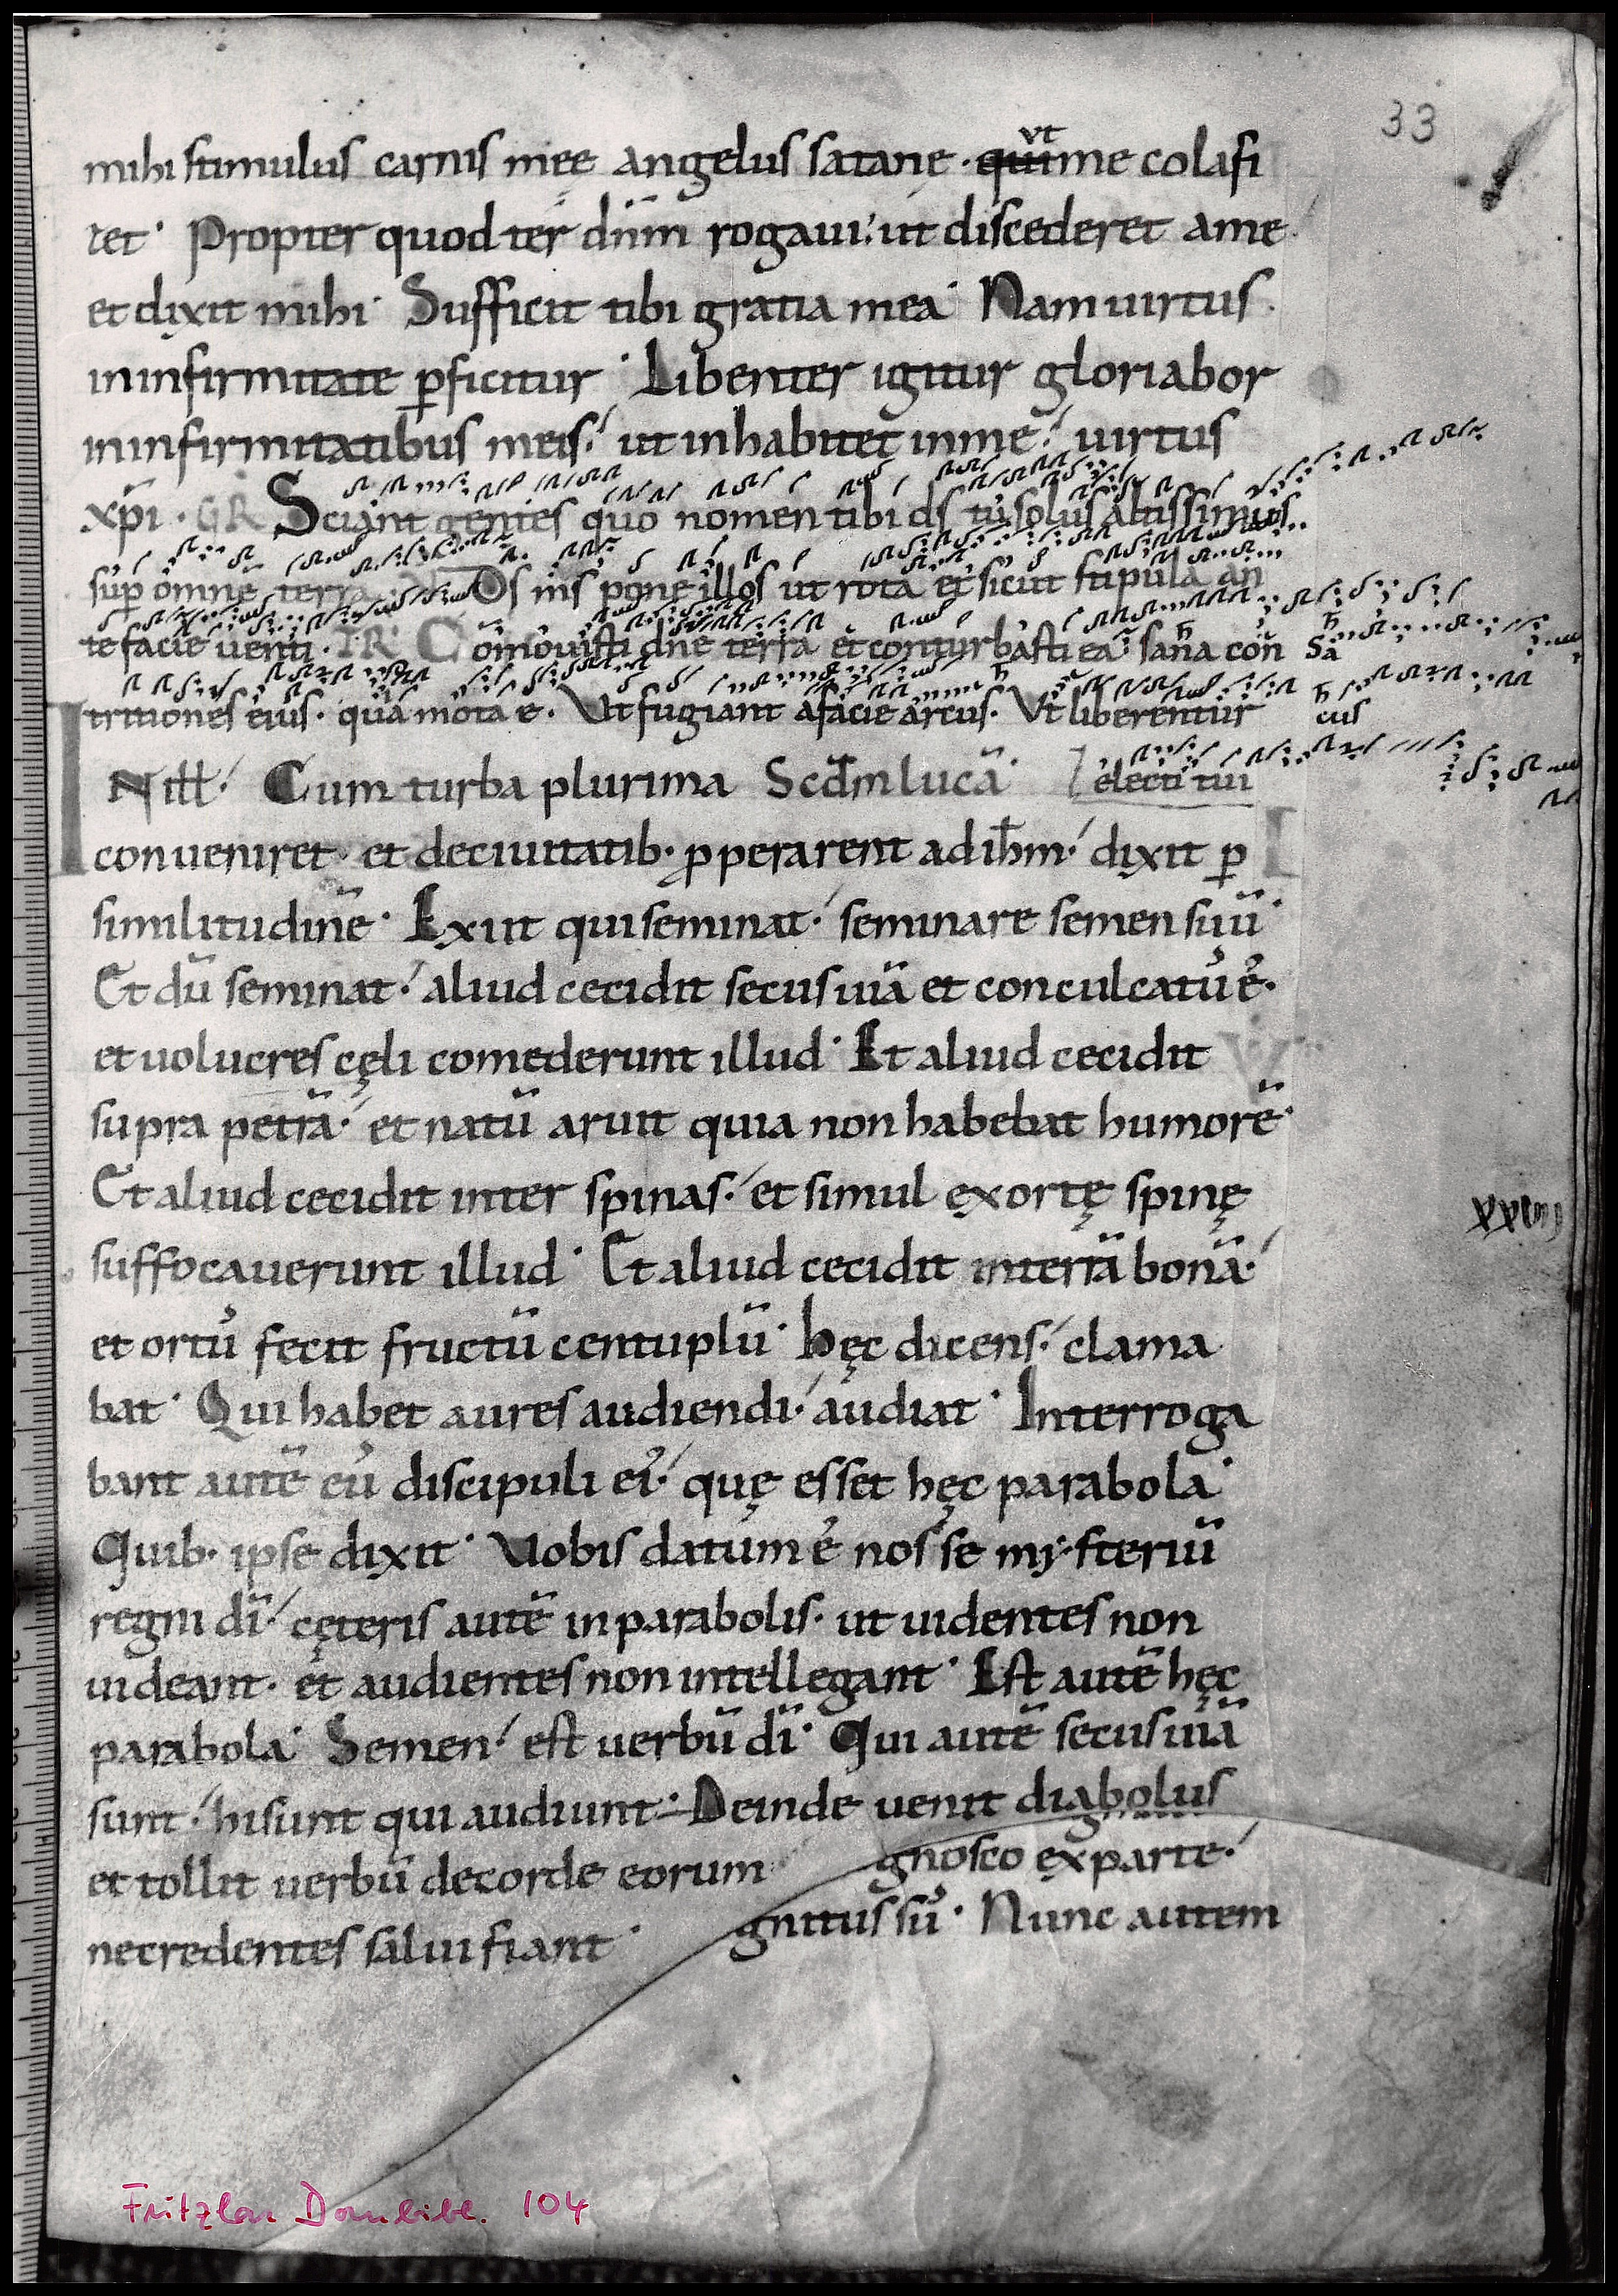 33
mihi stimulus carnis meę angelus satanę · qui me colafi
vt
zet · Propter quod ter dn̄m rogaui · ut discederet ame
et dixit mihi · Sufficit tibi gratia mea · Nam uirtus
ininfirmitate ꝑficitur · Libenter igitur gloriabor
ininfirmitatibus meis · ut inhabitet inme · uirtus
xp̄i · GR Sciant gentes quō nomen tibi ds̄ tu solus altissimus
suꝑ omnē terrā · Ds̄ ms̄ pone illos ut rota et sicut stipula an
te faciē uenti · TR Cōmouisti dn̄e terrā et conturbasti eā · sana con Sa
tritiones eius · quia mota ē · Vt fugiant afacie arcus · Vt liberentur cus
IN ill̄ · Cum turba plurima Scd̄m lucā · electi tui
conueniret · et deciuitatib · ꝓperarent ad ih̄m · dixit ꝑ
similitudinē · Exiit quiseminat · seminare semen suū ·
Et dū seminat · aliud cecidit secus uiā et conculcatū ē ·
et uolucres cęli comederunt illud · Et aliud cecidit
supra petrā · et natū aruit quia non habebat humorē ·
Et aliud cecidit inter spinas · et simul exortę spinę
XXIIII
suffocauerunt illud · Et aliud cecidit interrā bonā ·
et ortū fecit fructū centuplū · hęc dicens · clama
bat · Qui habet aures audiendi · audiat · Interroga
bant autē eū discipuli ei · quę esset hęc parabola ·
Quib · ipse dixit · Vobis datum ē nosse mysteriū
regni dī · cęteris autē inparabolis · ut uidentes non
uideant · et audientes non intellegant · Est autē hęc
parabola · Semen · est uerbū dī · Qui autē secus uiā
sunt · hisunt qui audiunt · Deinde uenit diabolus
et tollit uerbū decorde eorum gnosco exparte ·
necredentes salui fiant · gnitus sū · Nunc autem
Fritzlar Dombibl. 104